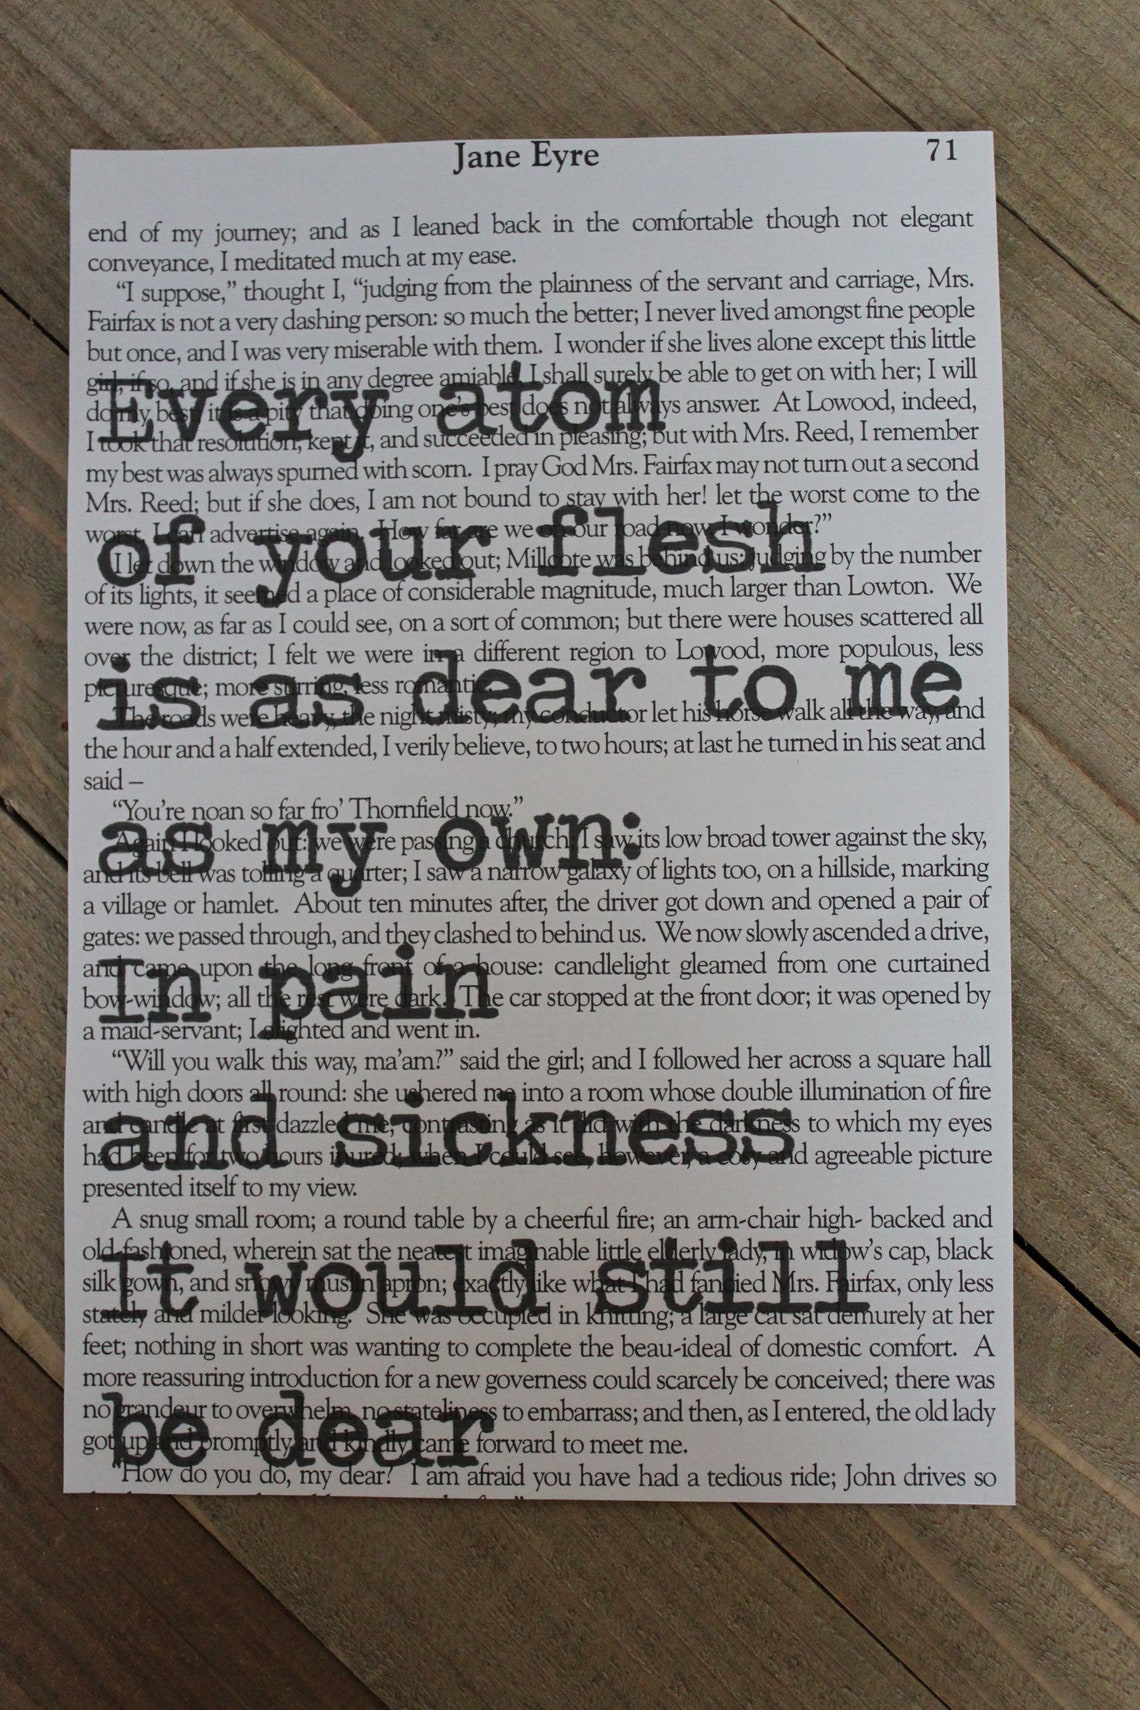 Jane Eyre 71
end of my journey; and as I leaned back in the comfortable though not elegant
conveyance, I meditated much at my ease.
“I suppose,” thought I, “judging from the plainness of the servant and carriage, Mrs.
Fairfax is not a very dashing person: so much the better; I never lived amongst fine people
but once, and I was very miserable with them. I wonder if she lives alone except this little
girl; if so, and if she is in any degree amiable, I shall surely be able to get on with her; I will
Every atom
do my best; it is a pity that doing one’s best does not always answer. At Lowood, indeed,
I took that resolution, kept it, and succeeded in pleasing; but with Mrs. Reed, I remember
my best was always spurned with scorn. I pray God Mrs. Fairfax may not turn out a second
Mrs. Reed; but if she does, I am not bound to stay with her! let the worst come to the
worst, I can advertise again. How far are we on our road now, I wonder?”
of your flesh
I let down the window and looked out; Millcote was behind us; judging by the number
of its lights, it seemed a place of considerable magnitude, much larger than Lowton. We
were now, as far as I could see, on a sort of common; but there were houses scattered all
over the district; I felt we were in a different region to Lowood, more populous, less
picturesque; more stirring, less romantic.
is as dear to me
The roads were heavy, the night misty; my conductor let his horse walk all the way, and
the hour and a half extended, I verily believe, to two hours; at last he turned in his seat and
said –
“You’re noan so far fro’ Thornfield now.”
as my own:
Again I looked out: we were passing a church; I saw its low broad tower against the sky,
and its bell was tolling a quarter; I saw a narrow galaxy of lights too, on a hillside, marking
a village or hamlet. About ten minutes after, the driver got down and opened a pair of
gates: we passed through, and they clashed to behind us. We now slowly ascended a drive,
and came upon the long front of a house: candlelight gleamed from one curtained
In pain
bow-window; all the rest were dark. The car stopped at the front door; it was opened by
a maid-servant; I alighted and went in.
“Will you walk this way, ma’am?” said the girl; and I followed her across a square hall
with high doors all round: she ushered me into a room whose double illumination of fire
and candle at first dazzled me, contrasting as it did with the darkness to which my eyes
and sickness
had been for two hours inured; when I could see, however, a cosy and agreeable picture
presented itself to my view.
A snug small room; a round table by a cheerful fire; an arm-chair high- backed and
old-fashioned, wherein sat the neatest imaginable little elderly lady, in widow’s cap, black
silk gown, and snowy muslin apron; exactly like what I had fancied Mrs. Fairfax, only less
It would still
stately and milder looking. She was occupied in knitting; a large cat sat demurely at her
feet; nothing in short was wanting to complete the beau-ideal of domestic comfort. A
more reassuring introduction for a new governess could scarcely be conceived; there was
no grandeur to overwhelm, no stateliness to embarrass; and then, as I entered, the old lady
be dear
got up and promptly and kindly came forward to meet me.
“How do you do, my dear? I am afraid you have had a tedious ride; John drives so